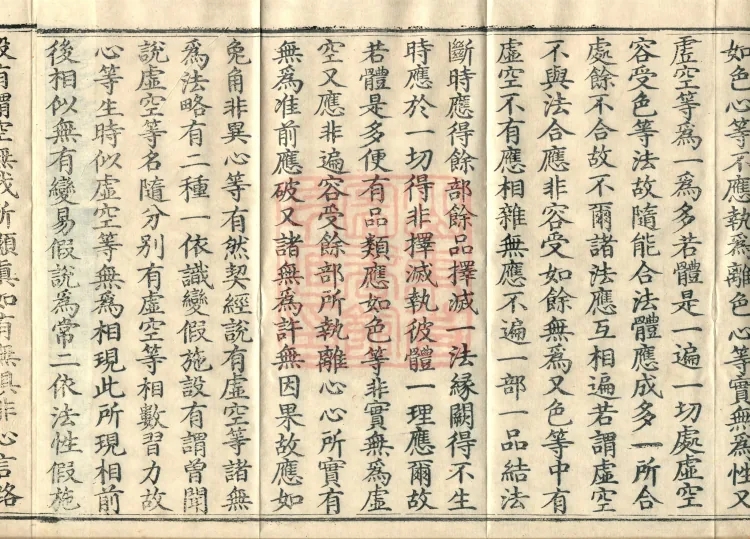 如色心等不應執爲離色心等實無爲性又
虛空等爲一爲多若體是一遍一切處虛空
容受色等法故隨能合法體應成多一所合
處餘不合故不爾諸法應互相遍若謂虛空
不與法合應非容受如餘無爲又色等中有
虛空不有應相雜無應不遍一部一品結法
斷時應得餘部餘品擇滅一法緣闕得不生
時應於一切得非擇滅執彼體一理應爾故
若體是多便有品類應如色等非實無爲虛
空又應非遍容受餘部所執離心心所實有
無爲准前應破又諸無爲許無因果故應如
兔角非異心等有然契經說有虛空等諸無
爲法略有二種一依識變假施設有謂曾聞
說虛空等名隨分別有虛空等相數習力故
心等生時似虛空等無爲相現此所現相前
後相似無有變易假說爲常二依法性假施
設有謂空無我所顯真如有無俱非心言路